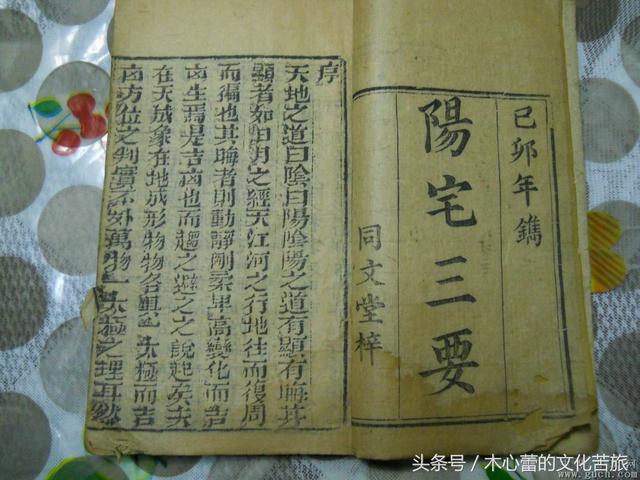 己卯年鐫
陽宅三要
同文堂梓
序
天地之道曰陰曰陽陰陽之道有顯有晦其
顯者如日月之經天江河之行地往而復周
而彌也其晦者則動靜剛柔卑高變化而吉
凶生焉是吉凶也而趨之避之之說起矣夫
在天成象在地成形物物各具一太極而吉
凶方位之判實不外萬物一太極之理耳
头条号／木心蕾的文化苦旅
www.gucn.com